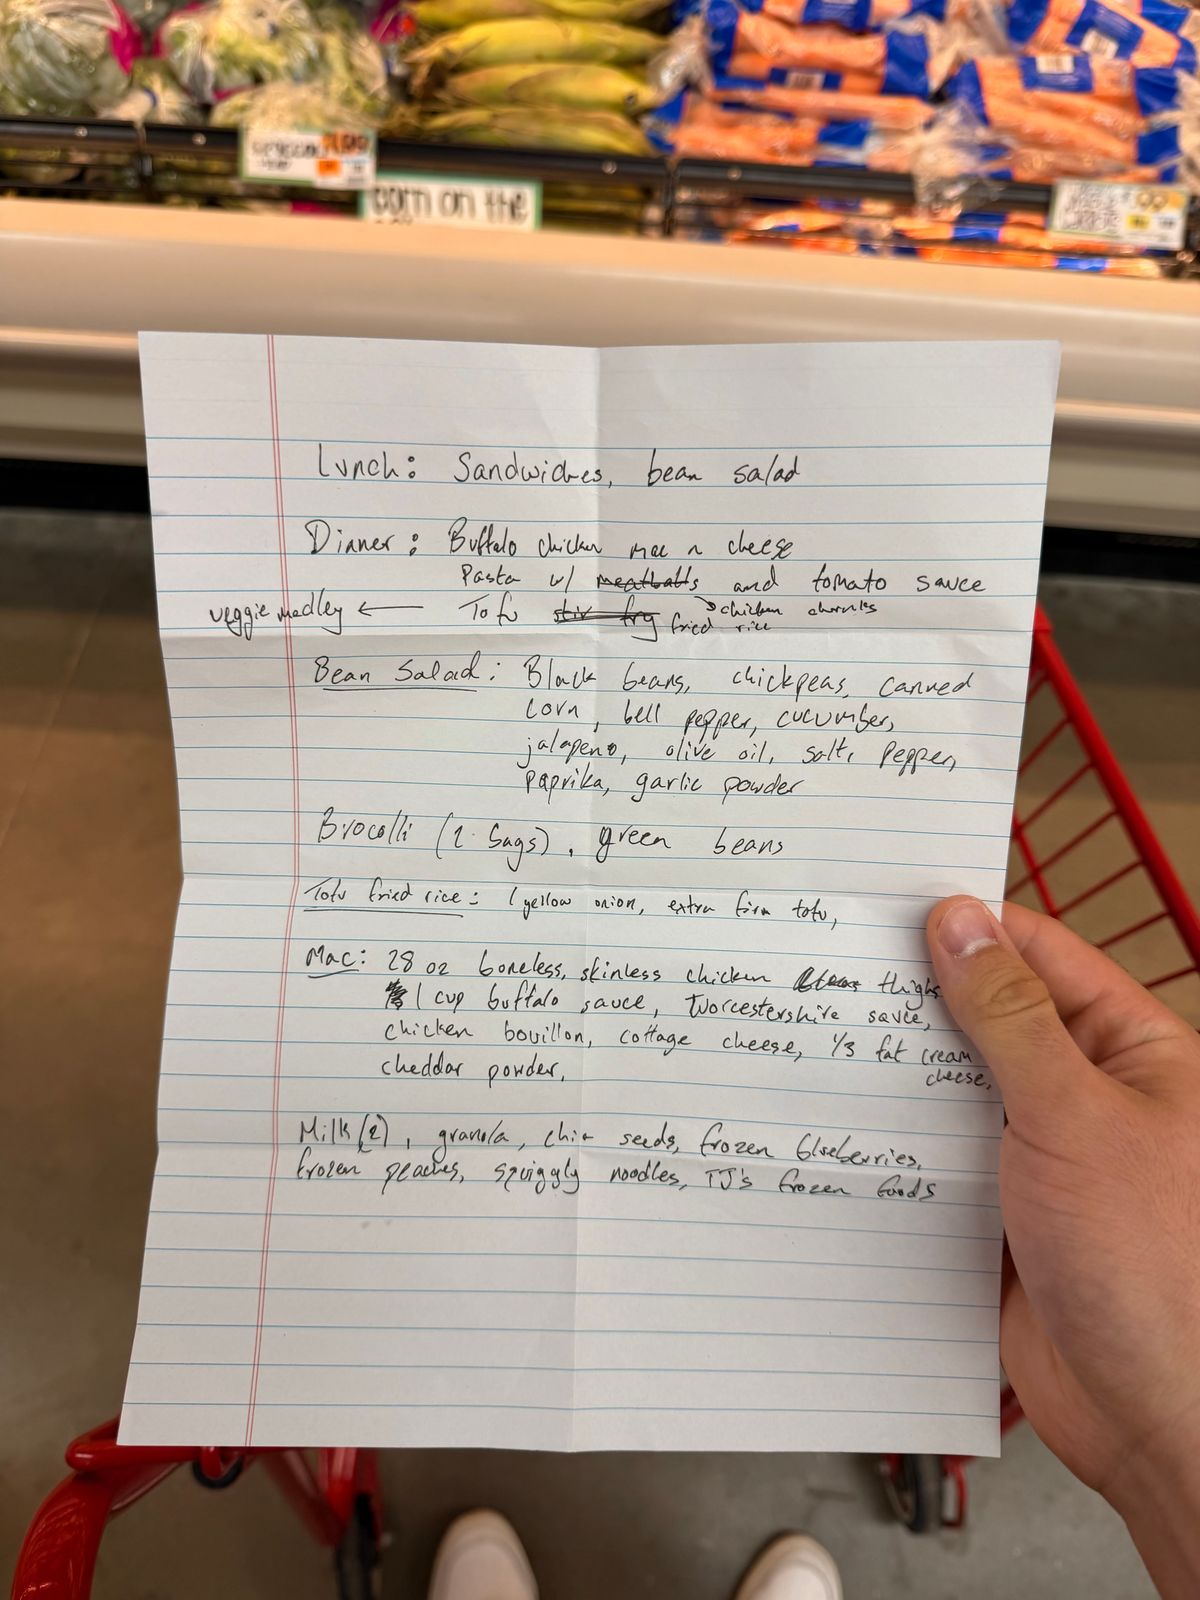 corn on the
Lunch: Sandwiches, bean salad
Dinner: Buffalo chicken mac n cheese
Pasta w/ meatballs and tomato sauce
chicken
veggie medley ← Tofu stir fry fried rice
Bean Salad: Black beans, chickpeas, canned
corn, bell pepper, cucumber,
jalapeno, olive oil, salt, pepper,
paprika, garlic powder
Brocolli (2 bags), green beans
Tofu fried rice: 1 yellow onion, extra firm tofu,
Mac: 28 oz boneless, skinless chicken thighs
1 cup buffalo sauce, Worcestershire sauce,
chicken bouillon, cottage cheese, 1/3 fat cream
cheese,
cheddar powder,
Milk (2), granola, chia seeds, frozen blueberries,
frozen peaches, squiggly noodles, TJ's frozen foods